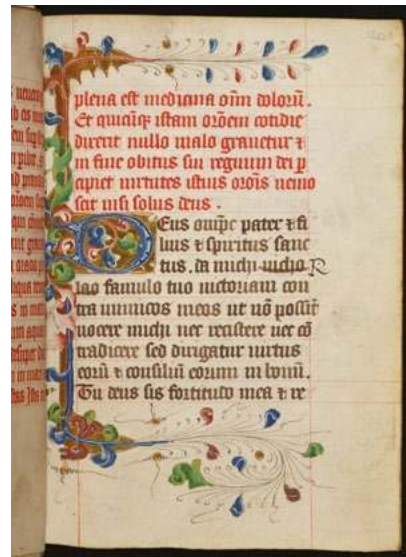 plena est medicina oīm dolorū.
Et quicūqꝫ istam orōem cotidie
dixerit nullo malo grauetur ⁊
in fine obitus sui regnum dei p
cipiet virtutes istius orōis nemo
scit nisi solus deus.
Deus omīpc pater ⁊ fi
lius ⁊ spiritus sanc
tus. da michi nicho
lao famulo tuo uictoriam con
tra inimicos meos ut nō possīt
nocere michi nec resistere nec cō
tradicere sed dirigatur uirtus
eorū ⁊ consiliū eorum in bonū.
Tu deus sis fortitudo mea ⁊ re